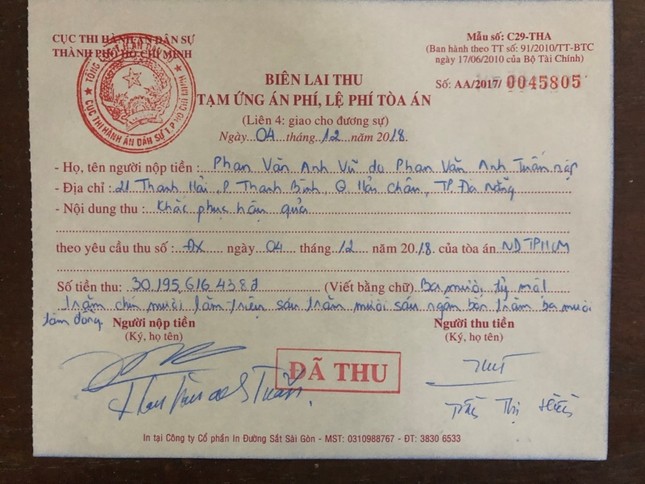 CỤC THI HÀNH ÁN DÂN SỰ
THÀNH PHỐ HỒ CHÍ MINH
Mẫu số: C29-THA
(Ban hành theo TT số: 91/2010/TT-BTC
ngày 17/06/2010 của Bộ Tài Chính)
Số: AA/2017/ 0045805
BIÊN LAI THU
TẠM ỨNG ÁN PHÍ, LỆ PHÍ TÒA ÁN
(Liên 4: giao cho đương sự)
Ngày 04 tháng 12 năm 2018
- Họ, tên người nộp tiền : Phan Văn Anh Vũ do Phan Văn Anh Tuấn nộp
- Địa chỉ : 21 Thanh Hải, P. Thanh Bình, Q Hải Châu, TP. Đà Nẵng
- Nội dung thu : Khắc phục hậu quả
theo yêu cầu thu số : ĐX ngày 04 tháng 12 năm 2018 của tòa án NDTPHCM
Số tiền thu: 30.195.616.438đ (Viết bằng chữ) Ba mươi tỷ một
trăm chín mươi lăm triệu sáu trăm mười sáu ngàn bốn trăm ba mươi
tám đồng
Người nộp tiền Người thu tiền
(Ký, họ tên) (Ký, họ tên)
ĐÃ THU
Thị
In tại Công ty Cổ phần In Đường Sắt Sài Gòn - MST: 0310988767 - ĐT: 3830 6533